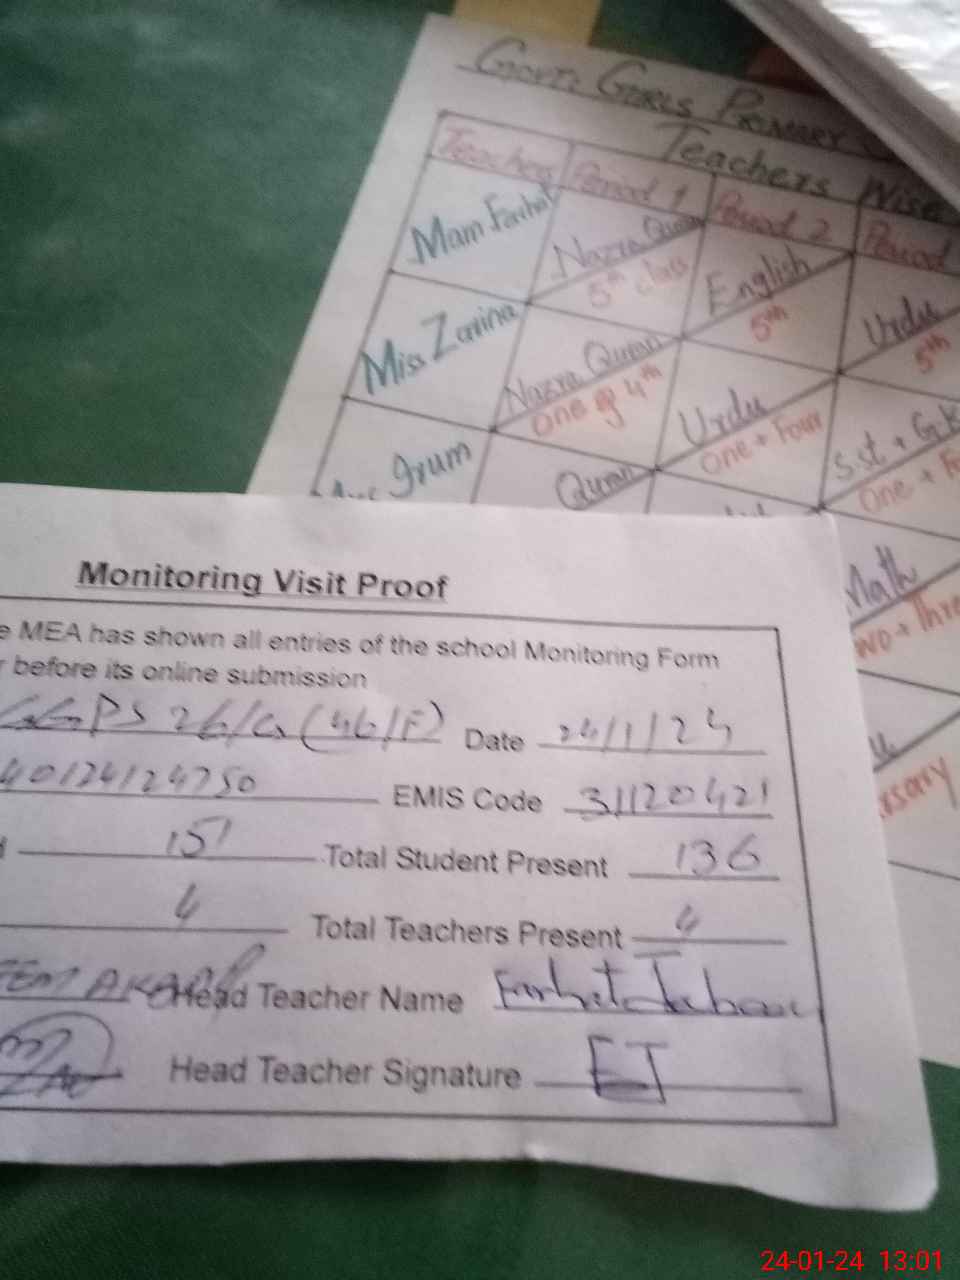 GOVT: GIRLS PRIMARY
TEACHERS WISE
Teacher Period 1 Period 2 Period
Mam Farhat Nazra Quran 5th class English 5th Urdu 5th
Miss Zarina Nazra Quran One & 4th Urdu One + Four S.st + G.K One +
Quran Math
Monitoring Visit Proof
e MEA has shown all entries of the school Monitoring Form
r before its online submission
GGPS 26/G (46/F) Date 24/1/24
40124124750 EMIS Code 31120421
151 Total Student Present 136
4 Total Teachers Present 4
Head Teacher Name Farhat
Head Teacher Signature
24-01-24 13:01